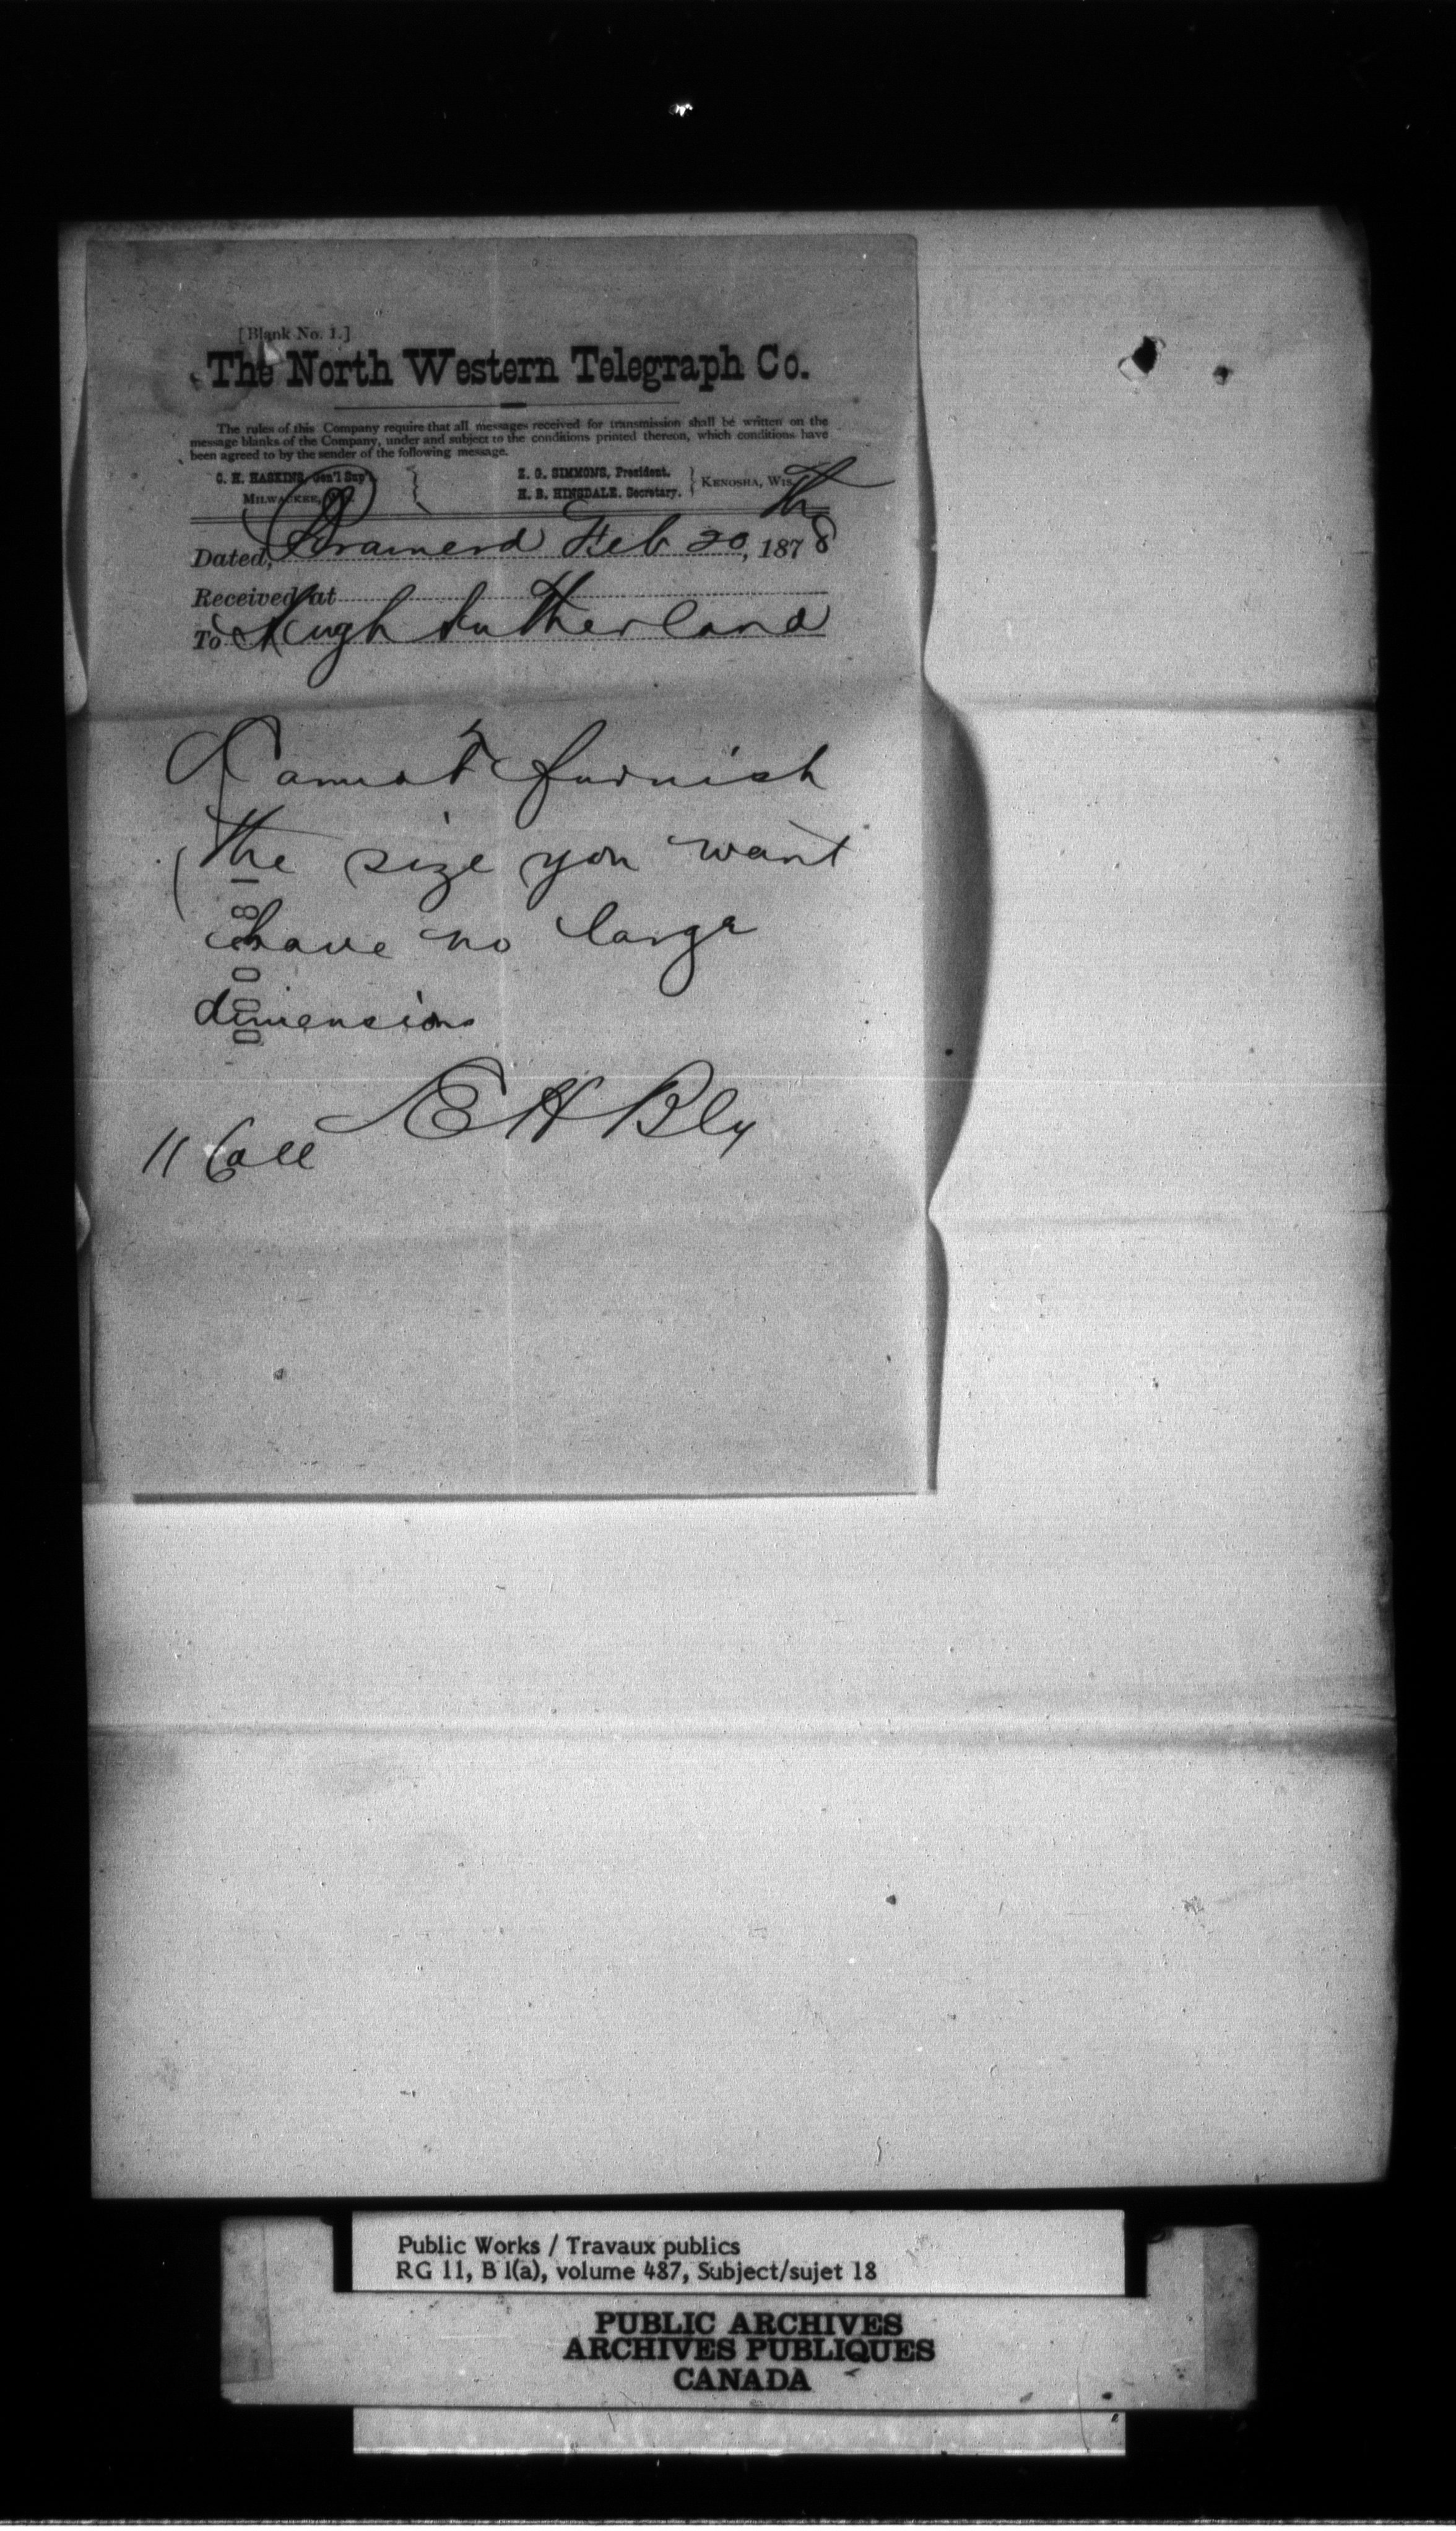 [Blank No. 1.]
The North Western Telegraph Co.
The rules of this Company require that all messages received for transmission shall be written on the
message blanks of the Company, under and subject to the conditions printed thereon, which conditions have
been agreed to by the sender of the following message.
C. H. HASKINS, Gen'l Sup't.
MILWAUKEE,
Z. G. SIMMONS, President.
H. B. HINSDALE, Secretary.
KENOSHA, WIS.
Dated, Brainerd Feb 20th, 1878
Received at
To Hugh Sutherland
Cannot furnish
the size you want
have no large
dimensions
E H Bly
11 Coll
Public Works / Travaux publics
RG 11, B 1(a), volume 487, Subject/sujet 18
PUBLIC ARCHIVES
ARCHIVES PUBLIQUES
CANADA